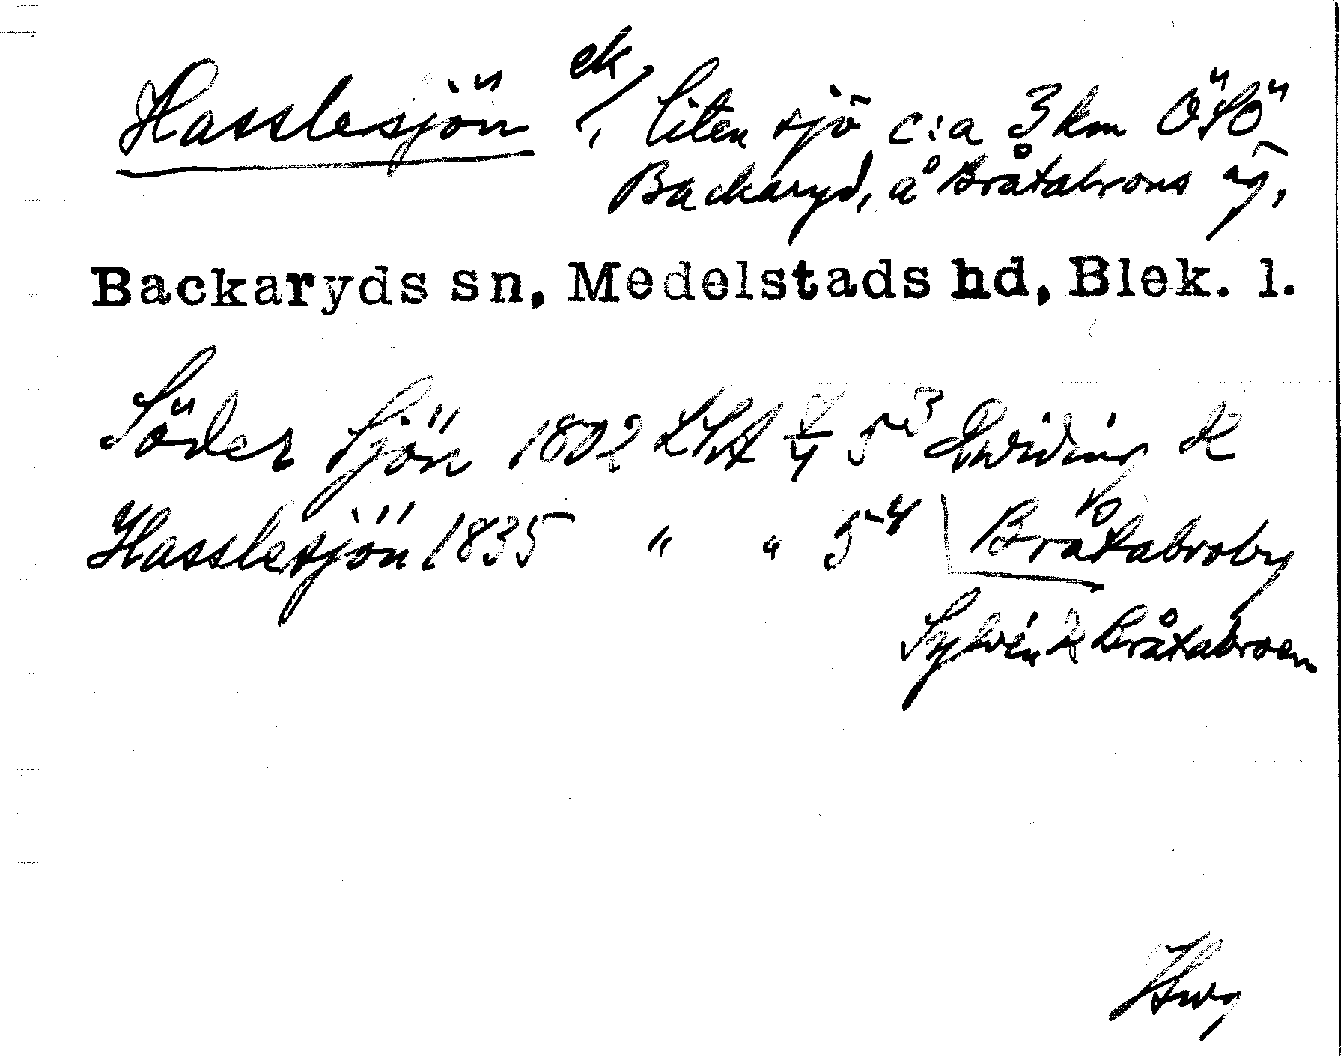 Hasslesjön ek, liten sjö c:a 3 km ÖSÖ
Backaryd, å Bråtabrons äg,
Backaryds sn, Medelstads hd, Blek. l.
Söder Sjön 1802 LSA 5³ k
Hasslesjön 1835 " " 5⁴ Bråtabroby
Sylvén k Bråtabroen
Hwg